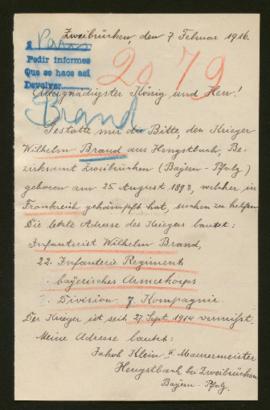 Zweibrücken, den 7 Februar 1916.
a Paris
Pedir informes
Que se haga así
Devolver
2079
Allergnädigster König und Herr!
Brand
Gestatte mir die Bitte, den Krieger
Wilhelm Brand aus Hengstbach, Be-
zirksamt Zweibrücken (Bayern-Pfalz)
geboren am 25 August 1893, welcher in
Frankreich gekämpft hat, suchen zu helfen.
Die letzte Adresse des Kriegers lautet:
Infanterist Wilhelm Brand,
22. Infanterie Regiment
bayerisches Armeekorps
Division 7 Kompagnie
Der Krieger ist seit 27 Sept. 1914 vermißt.
Meine Adresse lautet:
Jakob Klein Maurermeister
Hengstbach bei Zweibrücken
Bayern-Pfalz.